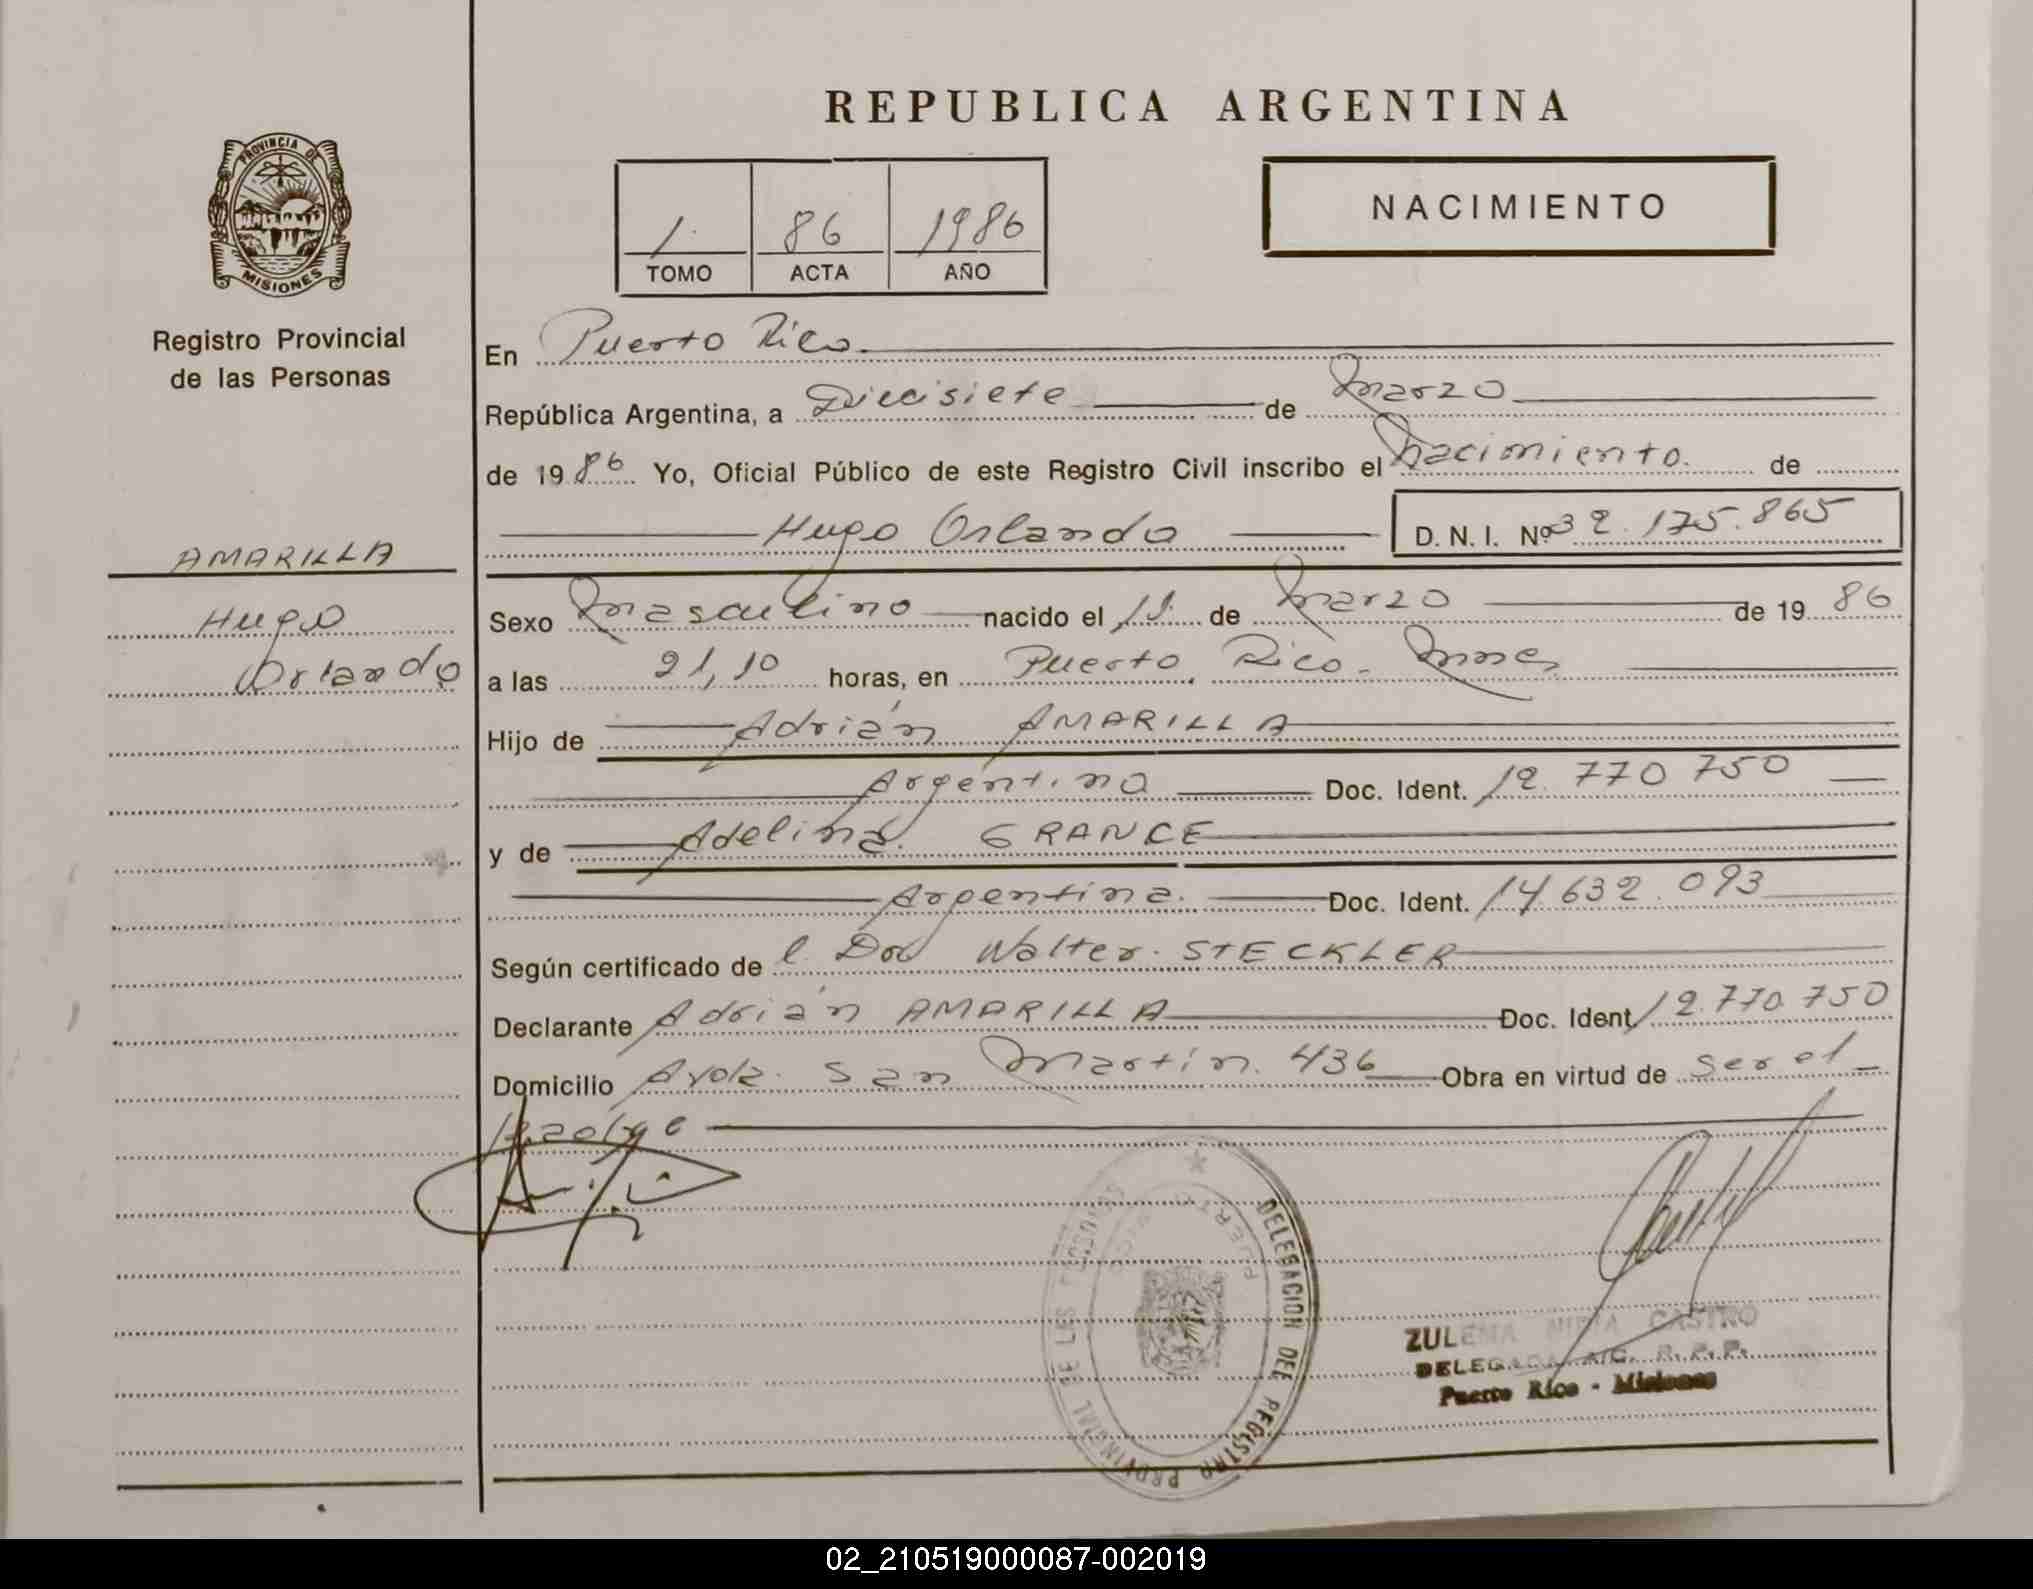 REPUBLICA ARGENTINA
PROVINCIA DE
MISIONES
Registro Provincial
de las Personas
1
86
1986
TOMO
ACTA
AÑO
NACIMIENTO
AMARILLA
Hugo
Orlando
En Puerto Rico
República Argentina, a Diecisiete de Marzo
de 1986 Yo, Oficial Público de este Registro Civil inscribo el Nacimiento de
Hugo Orlando D. N. I. Nº 32.175.865
Sexo Masculino nacido el 11 de Marzo de 1986
a las 21,10 horas, en Puerto Rico. Mnes
Hijo de Adrián AMARILLA
Argentino Doc. Ident. 12.770 750
y de Adelina GRANCE
Argentina. Doc. Ident. 14.632.093
Según certificado de l Doc Walter STECKLER
Declarante Adrián AMARILLA Doc. Ident. 12.770.750
Domicilio Avda. San Martín 436 Obra en virtud de ser el
padre
DELEGACION DEL REGISTRO PROVINCIAL DE LAS PERSONAS
PUERTO RICO
ZULEMA CASTRO
DELEGADA R. P. P.
Puerto Rico - Misiones
02_210519000087-002019